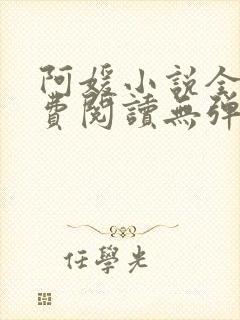 阿媛小説全
費閱讀無彈
任學光